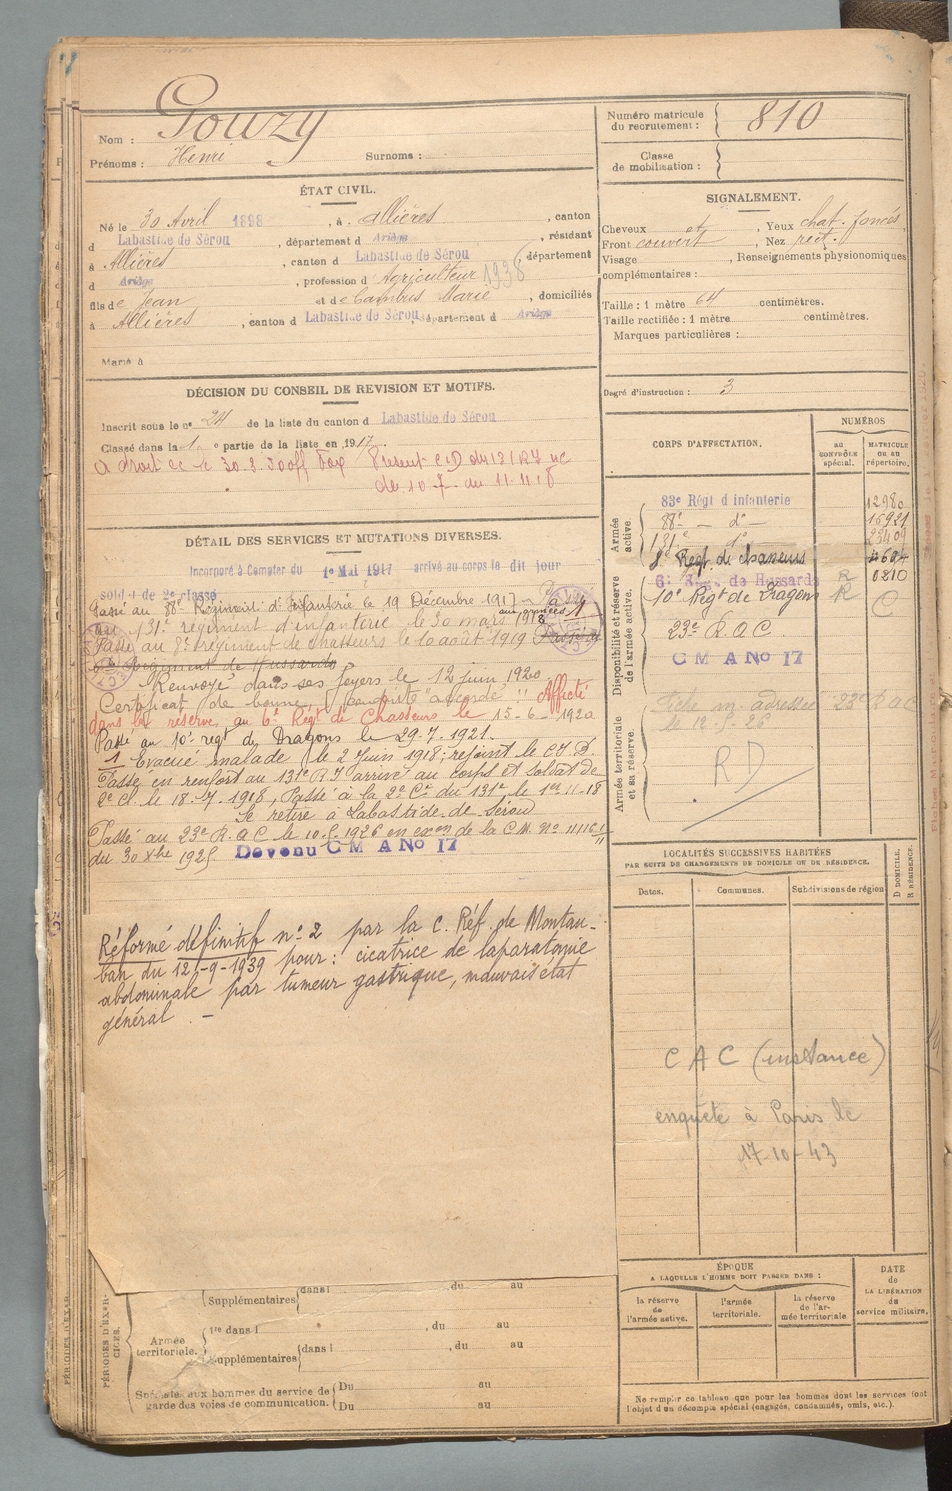 Nom : Gouzy
Prénoms : Henri Surnoms :
Numéro matricule du recrutement : 810
Classe de mobilisation :
ÉTAT CIVIL.
Né le 30 Avril 1898, à Allières, canton
d Labastide de Sérou, département d Ariège, résidant
à Allières, canton d Labastide de Sérou, département
d Ariège, profession d Agriculteur 1938
fils de Jean et de Cambus Marie, domiciliés
à Allières, canton d Labastide de Sérou, département d Ariège
Marié à
DÉCISION DU CONSEIL DE REVISION ET MOTIFS.
Inscrit sous le nº 24 de la liste du canton d Labastide de Sérou
Classé dans la 1 e partie de la liste en 1917.
du 11.11.18
DÉTAIL DES SERVICES ET MUTATIONS DIVERSES.
Incorporé à Compter du 1er Mai 1917 arrivé au corps le dit jour
soldat de 2e classe
Passé au 88e Régiment d'Infanterie le 19 Décembre 1917
au 131e régiment d'infanterie le 30 mars 1918 aux armées 1
Passé au 8e régiment de chasseurs le 10 août 1919 Passé au
6e Régiment de Hussards
Renvoyé dans ses foyers le 12 juin 1920
Certificat de bonne conduite "accordé" Affecté
dans la réserve au 6e Régt de Chasseurs le 15-6-1920
Passé au 10e régt de Dragons le 29-7-1921.
1 Evacué malade le 2 Juin 1918; rejoint le C.I.D.
Passé en renfort au 131e R I arrivé au corps et soldat de
2e Cl. le 18-7-1918, Passé à la 2e Cie du 131e le 1er-11-18
Se retire à Labastide-de-Sérou
Passé au 23e R.A.C le 10-5-1926 en exon de la C.M. Nº 11116
du 30 Xbre 1925 Devenu C M A No 17
Réformé définitif nº 2 par la C. Réf. de Montau-
ban du 12-9-1939 pour : cicatrice de laparatomie
abdominale par tumeur gastrique, mauvais état
général . -
SIGNALEMENT.
Cheveux , Yeux chat. foncés
Front couvert , Nez rect.
Visage , Renseignements physionomiques
complémentaires :
Taille : 1 mètre 64 centimètres.
Taille rectifiée : 1 mètre centimètres.
Marques particulières :
Degré d'instruction : 3
CORPS D'AFFECTATION.
NUMÉROS
AU CONTRÔLE spécial.
MATRICULE OU AU répertoire.
Armée active.
83e Régt d'infanterie 12980
88e — do — 16921
131e do 23409
8e Régt de chasseurs
Disponibilité et réserve de l'armée active.
6e Régt de Hussards R 0810
10e Régt de Dragons R C
23e R.A.C.
C M A No 17
Armée territoriale et sa réserve.
Fiche m. adressée 23e R A C
le 12-5-26
R D
LOCALITÉS SUCCESSIVES HABITÉES
PAR SUITE DE CHANGEMENTS DE DOMICILE OU DE RÉSIDENCE.
Dates. Communes. Subdivisions de région
D DOMICILE. R RÉSIDENCE.
C A C (instance)
enquête à Paris le
17-10-43
ÉPOQUE
A LAQUELLE L'HOMME DOIT PASSER DANS :
la réserve de l'armée active.
l'armée territoriale.
la réserve de l'armée territoriale
DATE de LA LIBÉRATION du service militaire.
Ne remplir ce tableau que pour les hommes dont les services font
l'objet d'un décompte spécial (engagés, condamnés, omis, etc.).
PÉRIODES D'EXER-
PÉRIODES D'EXER-
CICES.
Supplémentaires dans l du au
Armée territoriale.
1re dans l , du au
Supplémentaires dans l , du au
Spéciales aux hommes du service de garde des voies de communication.
Du au
Du au